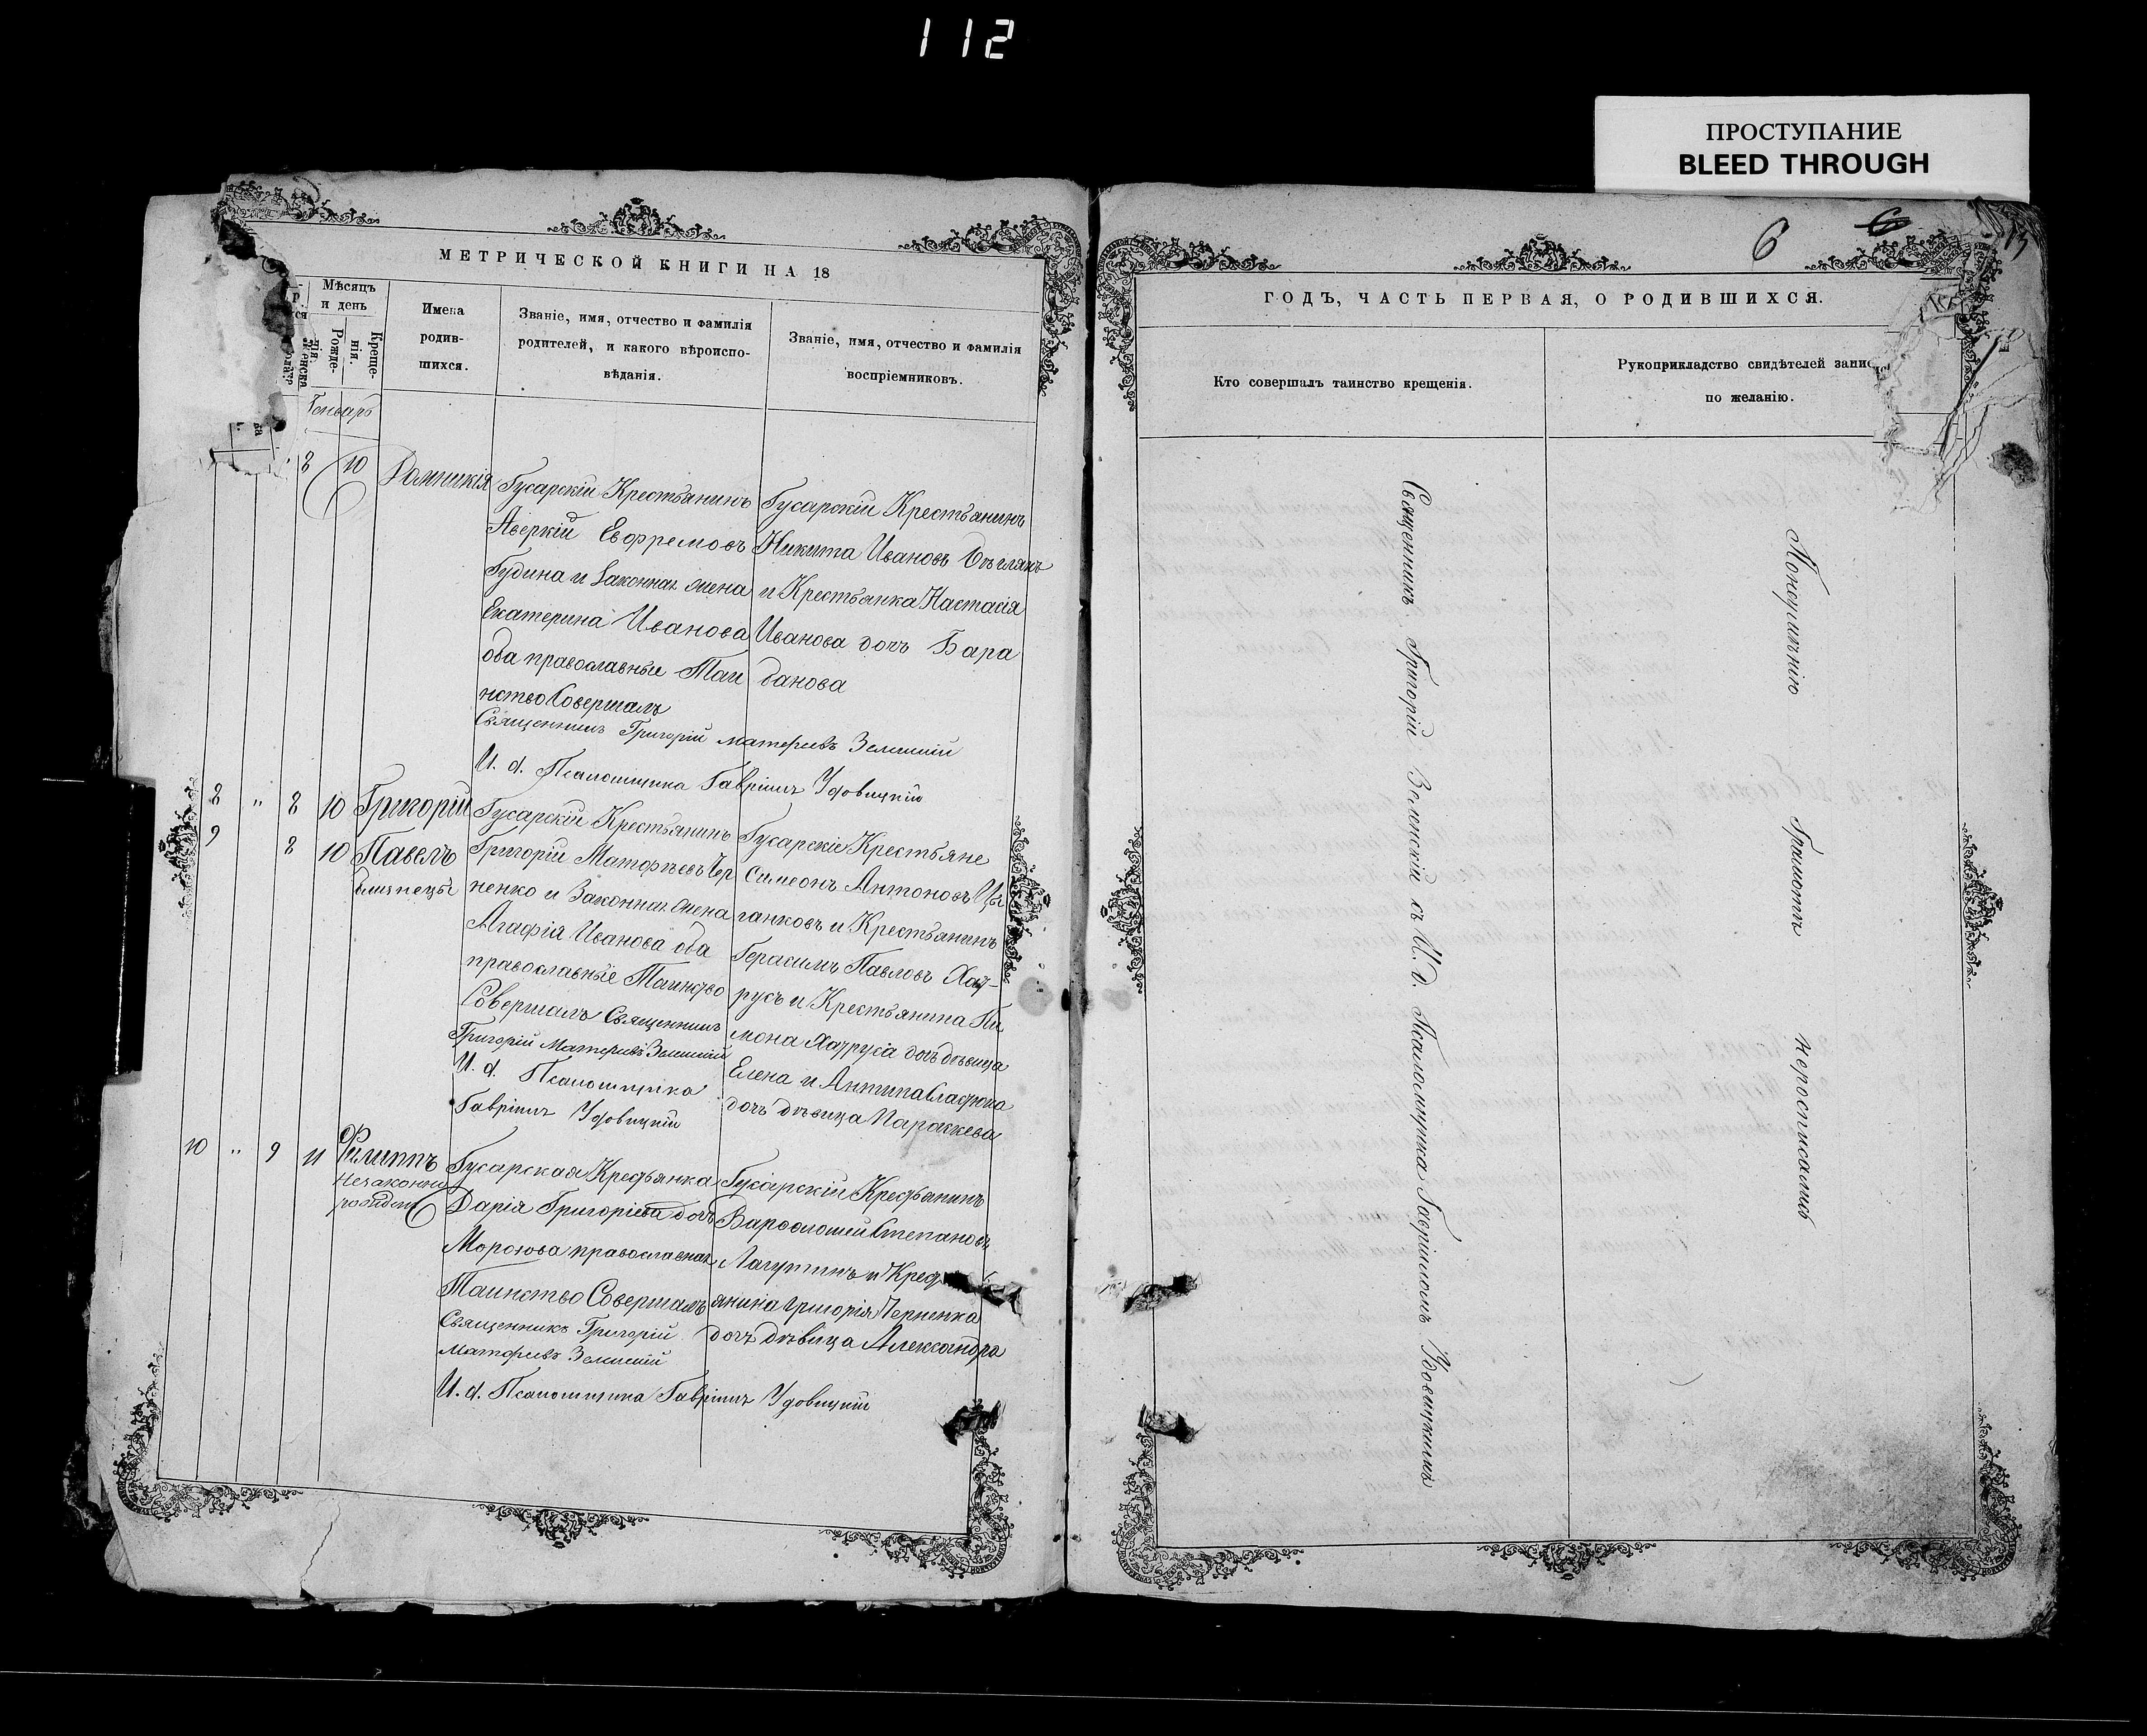 112
ПРОСТУПАНИЕ
BLEED THROUGH
6
МЕТРИЧЕСКОЙ КНИГИ НА 18
Мѣсяцъ
и день
Рожде-
нія.
Креще-
нія.
Имена
родив-
шихся.
Званіе, имя, отчество и фамилія
родителей, и какого вѣроиспо-
вѣданія.
Званіе, имя, отчество и фамилія
воспріемниковъ.
Генварь
8 10 Домникія
Гусарскій Крестьянинъ
Аверкій Евфремовъ
Гудина и Законная жена
Екатерина Иванова
оба православные Таи
нство Совершалъ
Священникъ Григорій
И. д. Псаломщика Гавріилъ Удовицкій
Гусарскій Крестьянинъ
Никита Ивановъ
и Крестьянка Настасія
Иванова дочь Бара
банова
8 " 8 10 Григорій
9 8 10 Павелъ
близнецы
Гусарскій Крестьянинъ
Григорій Матфѣевъ Чер
ненко и Законная жена
Агафія Иванова оба
православные Таинство
Совершалъ Священникъ
Григорій
И. д. Псаломщика
Гавріилъ Удовицкій
Гусарскіе Крестьяне
Симеонъ Антоновъ Цы
ганковъ и Крестьянинъ
Герасимъ Павловъ
русъ и Крестьянина Пи
мона дочь дѣвица
Елена и Антипа
дочь дѣвица Параскева
10 " 9 11 Филиппъ
Незаконно
рожден
Гусарская Крестьянка
Дарія Григоріева дочь
Морозова православная
Таинство Совершалъ
Священникъ Григорій
И. д. Псаломщика Гавріилъ Удовицкій
Гусарскій Крестьянинъ
Варфоломей Степановъ
Лагутинъ и Крест
янина Григорія Черненка
дочь дѣвица Александра
ГОДЪ, ЧАСТЬ ПЕРВАЯ, О РОДИВШИХСЯ.
Кто совершалъ таинство крещенія.
Рукоприкладство свидѣтелей запис
по желанію.
Священникъ Григорій съ И. д. Псаломщика Гавріиломъ Удовицкимъ